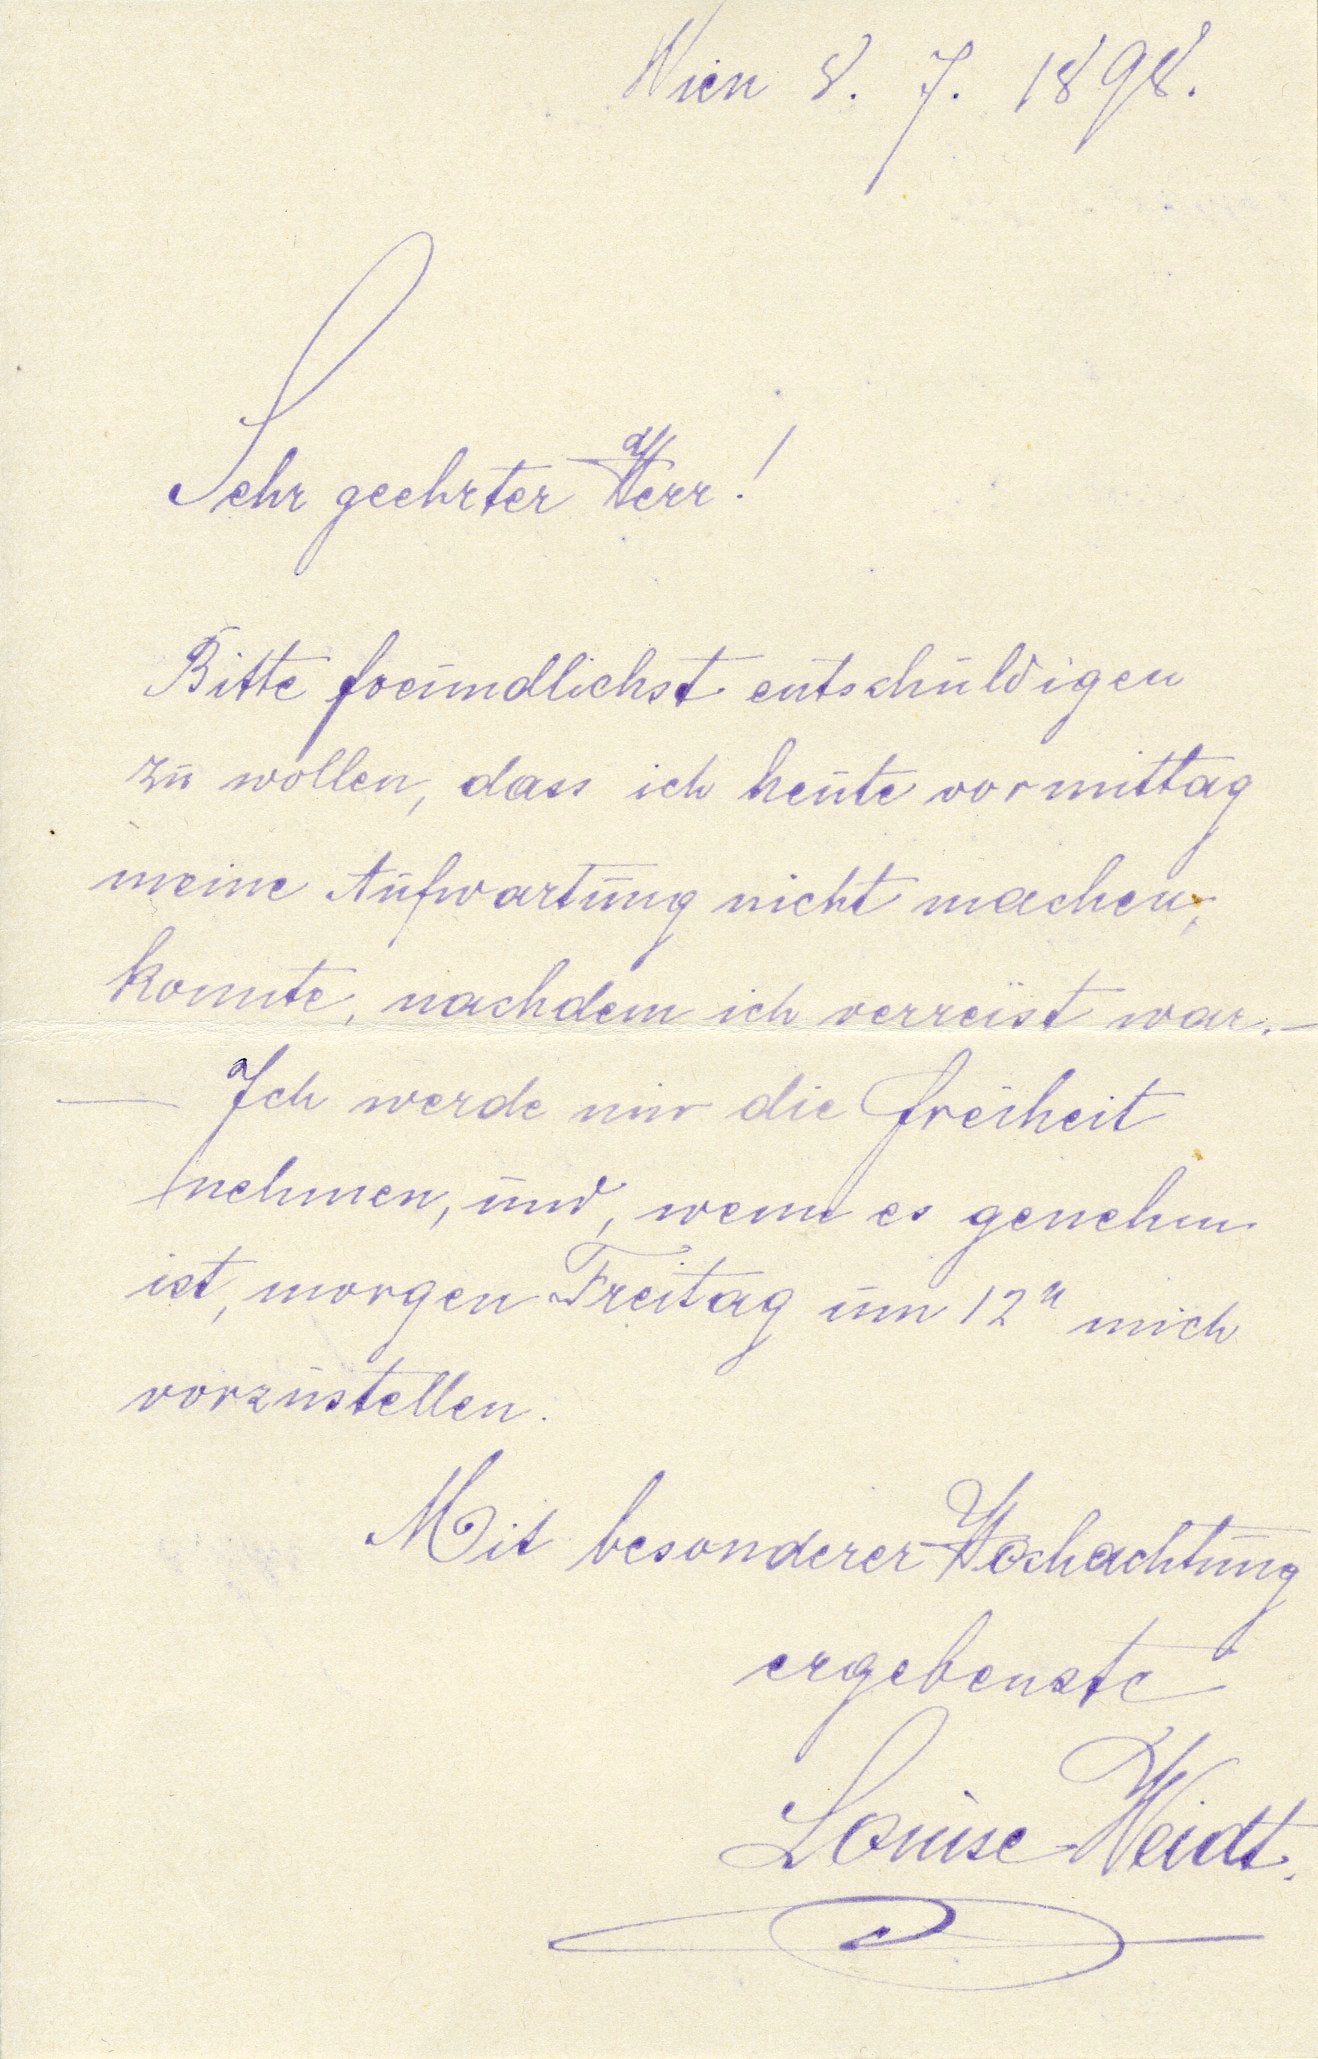 Wien 8. 7. 1898.
Sehr geehrter Herr!
Bitte freundlichst entschuldigen
zu wollen, dass ich heute vormittag
meine Aufwartung nicht machen,
konnte, nachdem ich verreist war.—
— Ich werde mir die Freiheit
nehmen, und, wenn es genehm
ist, morgen Freitag um 12ʰ mich
vorzustellen.
Mit besonderer Hochachtung
ergebenste
Louise Weidt.